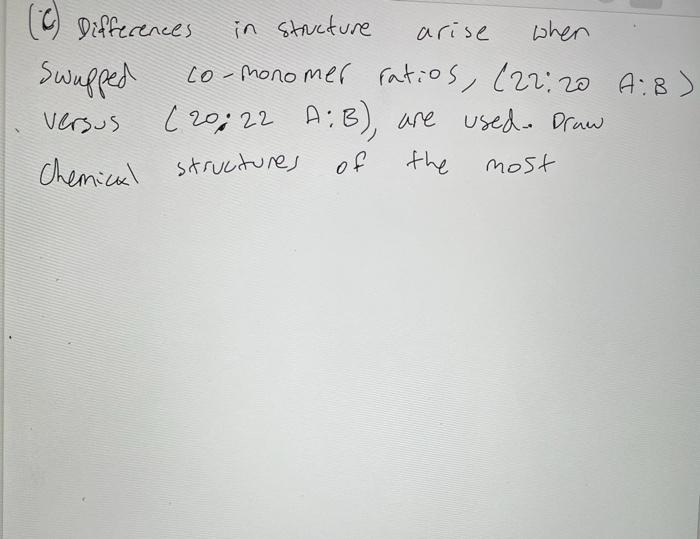 (c) Differences in structure arise when
swapped co-monomer ratios, (22:20 A:B)
versus (20:22 A:B), are used. Draw
Chemical structures of the most